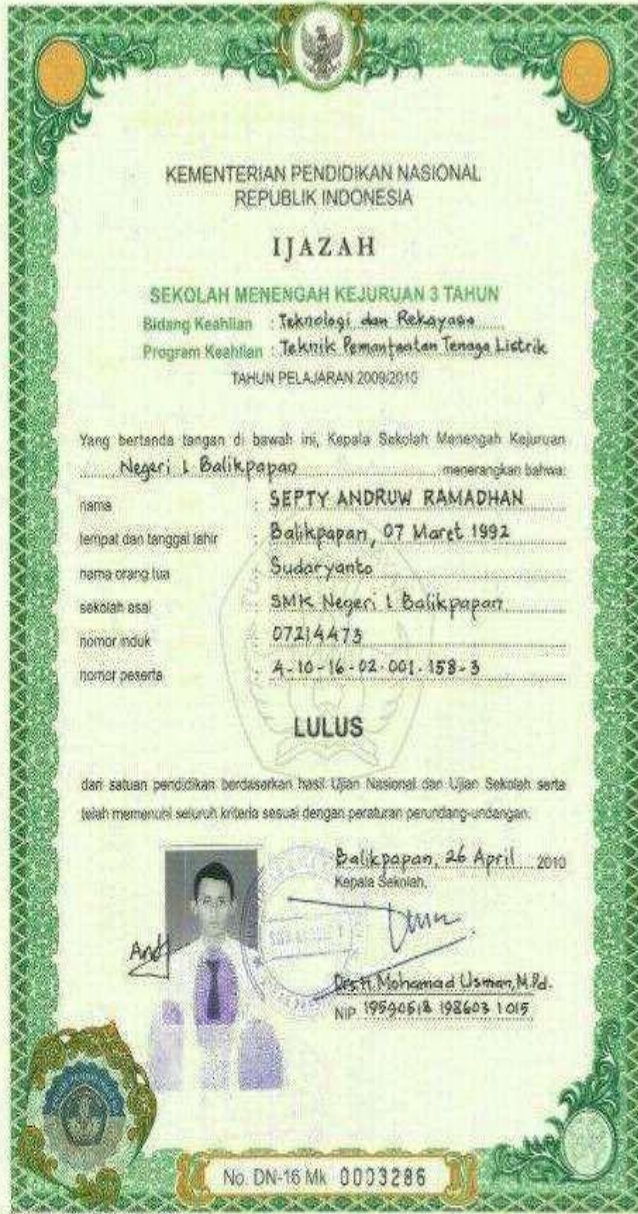 KEMENTERIAN PENDIDIKAN NASIONAL
REPUBLIK INDONESIA
IJAZAH
SEKOLAH MENENGAH KEJURUAN 3 TAHUN
Bidang Keahlian : Teknologi dan Rekayasa
Program Keahlian : Teknik Pemanfaatan Tenaga Listrik
TAHUN PELAJARAN 2009/2010
Yang bertanda tangan di bawah ini, Kepala Sekolah Menengah Kejuruan
Negeri 1 Balikpapan menerangkan bahwa:
nama : SEPTY ANDRUW RAMADHAN
tempat dan tanggal lahir : Balikpapan, 07 Maret 1992
nama orang tua : Sudaryanto
sekolah asal : SMK Negeri 1 Balikpapan
nomor induk : 07214473
nomor peserta : 4-10-16-02-001-158-3
LULUS
dari satuan pendidikan berdasarkan hasil Ujian Nasional dan Ujian Sekolah serta
telah memenuhi seluruh kriteria sesuai dengan peraturan perundang-undangan.
Balikpapan, 26 April 2010
Kepala Sekolah,
Mohamad Usman, M.Pd.
NIP 19590518 198603 1 015
No. DN-16 Mk 0003286